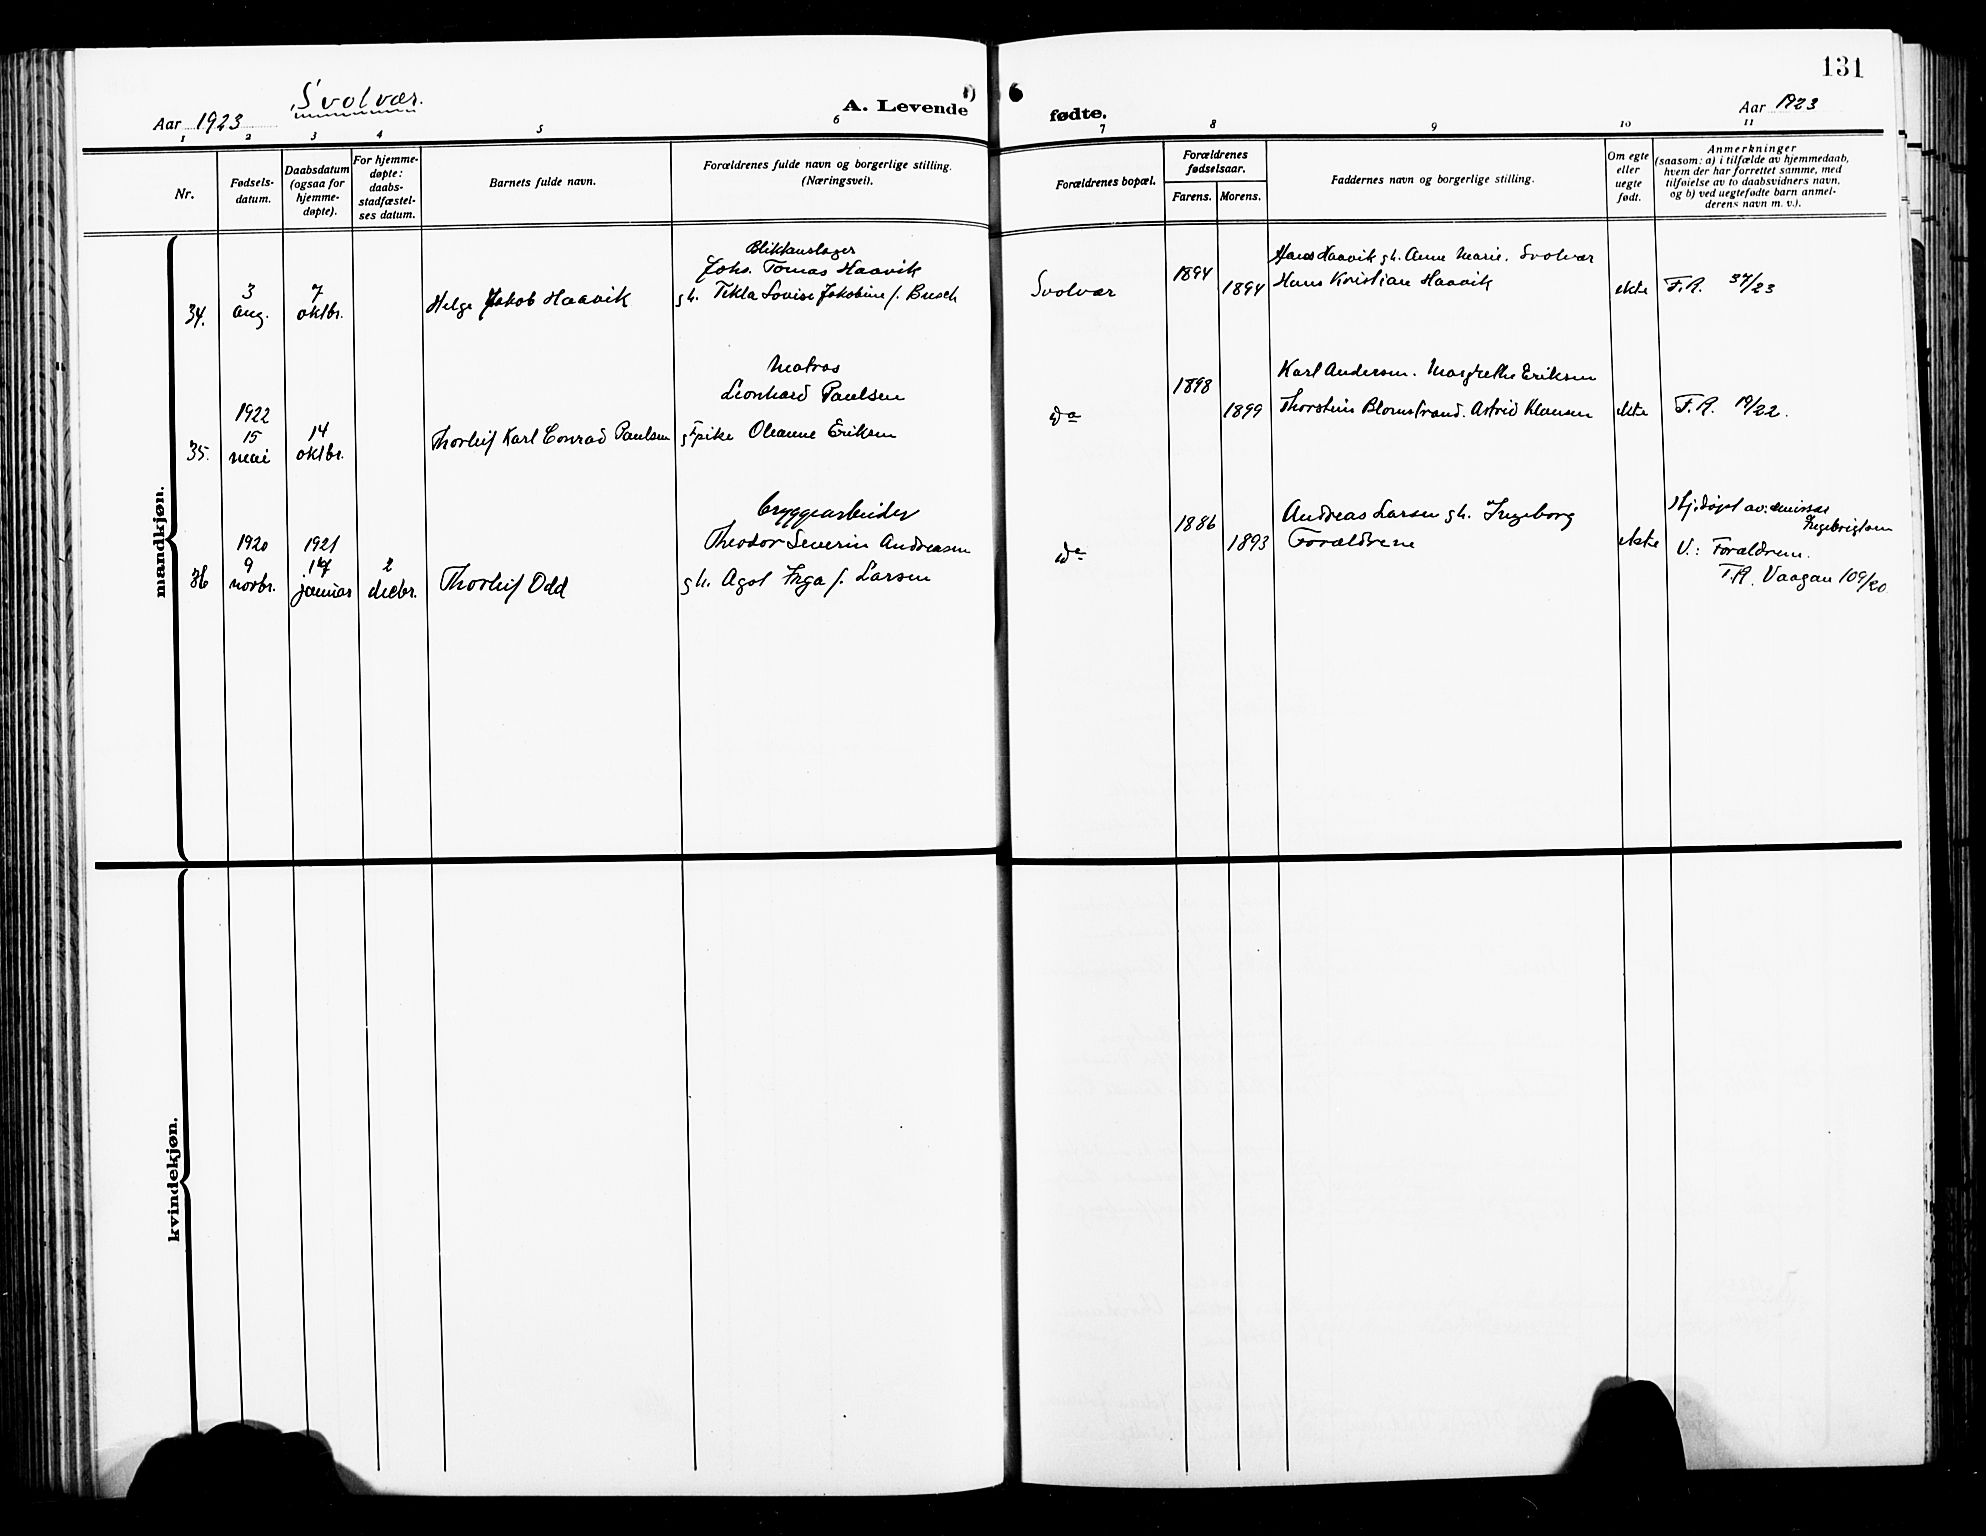 131
Svolvær.
Aar 1923
A. Levende
fødte.
Aar 1923
1 2 3 4 5 6 7 8 9 10 11
Nr.
Fødsels-
datum.
Daabsdatum
(ogsaa for
hjemme-
døpte).
For hjemme-
døpte:
daabs-
stadfæstel-
ses datum.
Barnets fulde navn.
Forældrenes fulde navn og borgerlige stilling.
(Næringsvei).
Forældrenes bopæl.
Forældrenes
fødselsaar.
Farens. Morens.
Faddernes navn og borgerlige stilling.
Om egte
eller
uegte
født.
Anmerkninger
(saasom: a) i tilfælde av hjemmedaab,
hvem der har forrettet samme, med
tilføielse av to daabsvidners navn,
og b) ved uegtefødte barn anmel-
derens navn m. v.).
mandkjøn.
34.
3
aug.
7
oktbr.
Helge Jakob Haavik
Blikkenslager
Johs. Tomas Haavik
gh. Tekla Lovise Jakobine f. Busch
Svolvær
1894
1894
Hans Haavik gh. Anne Marie. Svolvær
Hans Kristian Haavik
ekte
F.R. 37/23
35.
1922
15
mai
14
oktbr.
Thorleif Karl Conrad Paulsen
Matros
Leonhard Paulsen
Oleanne Eriksen
do
1898
1899
Karl Andersen. Margrethe Eriksen
Thorstein Blomstrand. Astrid Klausen
ekte
F.R. 19/22.
36
1920
9
novbr.
1921
17
januar
2
decbr.
Thorleif Odd
bryggearbeider
Theodor Severin Andreasen
gh. Agot Inga f. Larsen
do
1886
1893
Andreas Larsen gh. Ingeborg
Forældrene
ekte
Hj.døpt av:
Ingebrigtsen
V.: Forældrene.
F.R. Vaagan 109/20
kvindekjøn.